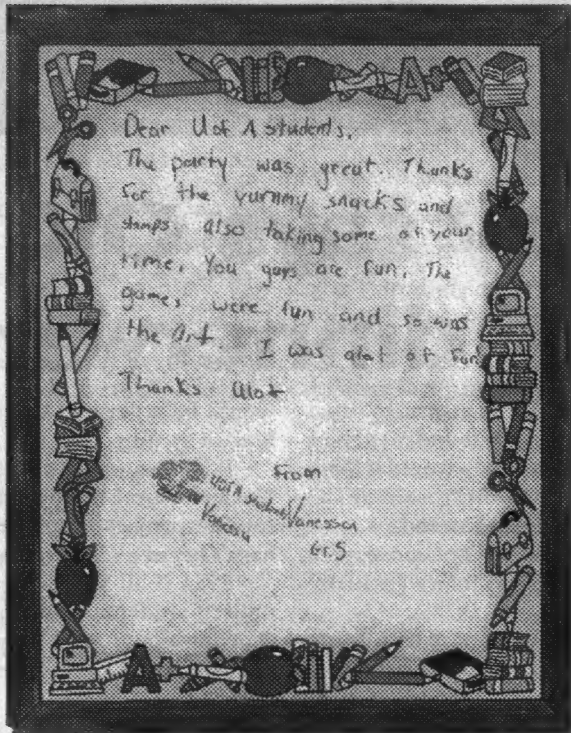 Dear U of A students,
The party was great. Thanks
for the yummy snacks and
stamps. also taking some of your
time. You guys are fun. The
games were fun and so was
the art. I was alot of fun
Thanks Alot
From
U of A students Vanessa
Vanessa
Gr.5
A+
A+